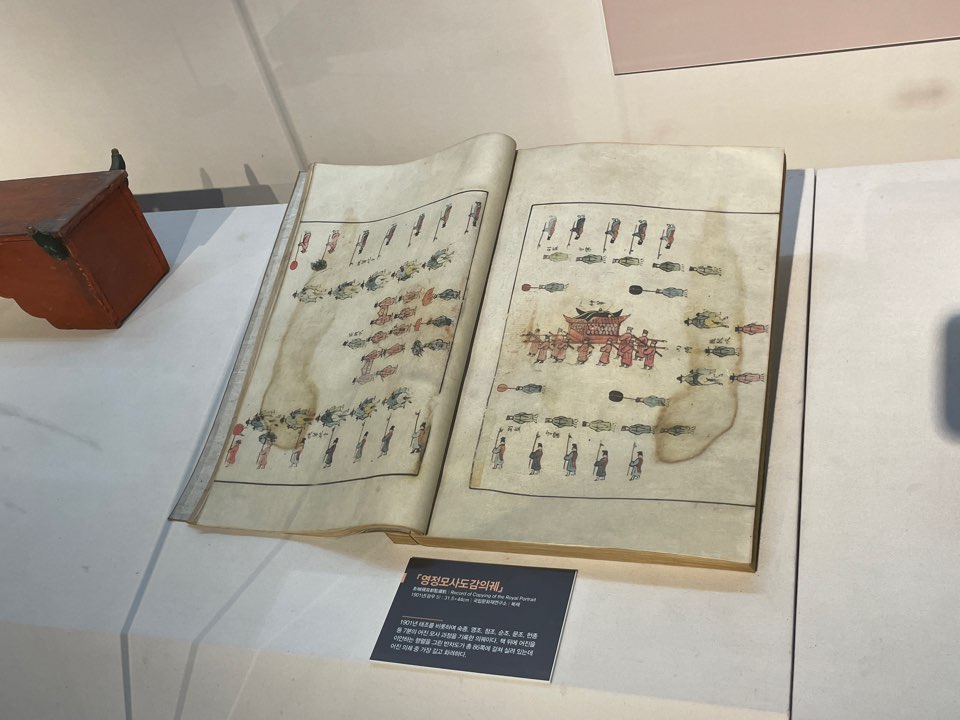 「영정모사도감의궤」
影幀摸寫都監儀軌 : Record of Copying of the Royal Portrait
1901년(광무 5) : 31.5×44cm : 국립문화재연구소 : 복제
1901년 태조를 비롯하여 숙종, 영조, 정조, 순조, 문조, 헌종
등 7분의 어진 모사 과정을 기록한 의궤이다. 책 뒤에 어진을
이안하는 행렬을 그린 반차도가 총 86폭에 걸쳐 실려 있는데
어진 의궤 중 가장 길고 화려하다.